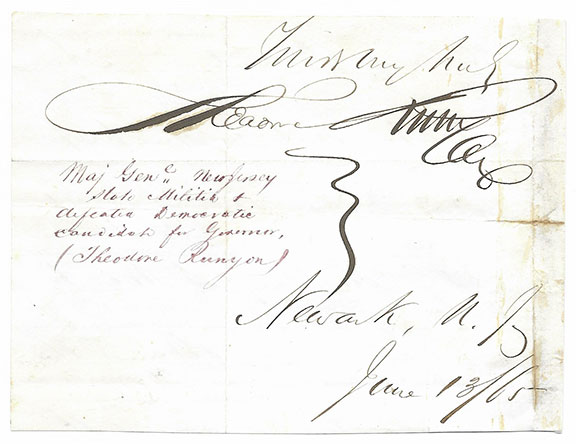 Theodore Runyon
Maj Genl. New Jersey
State Militia &
defeated Democratic
candidate for Governor,
(Theodore Runyon)
Newark, N. J.
June 13/65